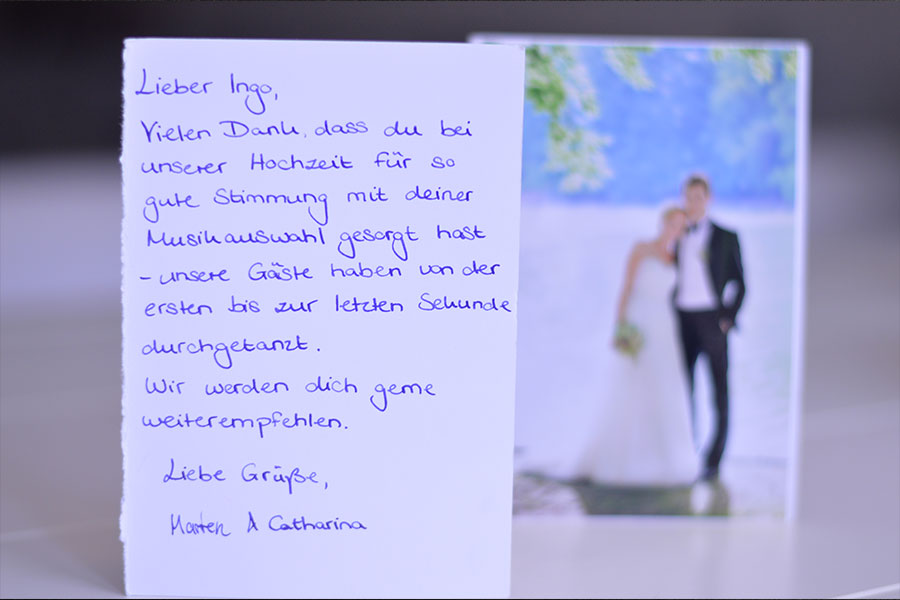 Lieber Ingo,
Vielen Dank, dass du bei
unserer Hochzeit für so
gute Stimmung mit deiner
Musikauswahl gesorgt hast
- unsere Gäste haben von der
ersten bis zur letzten Sekunde
durchgetanzt.
Wir werden dich gerne
weiterempfehlen.
Liebe Grüße,
Marten & Catharina